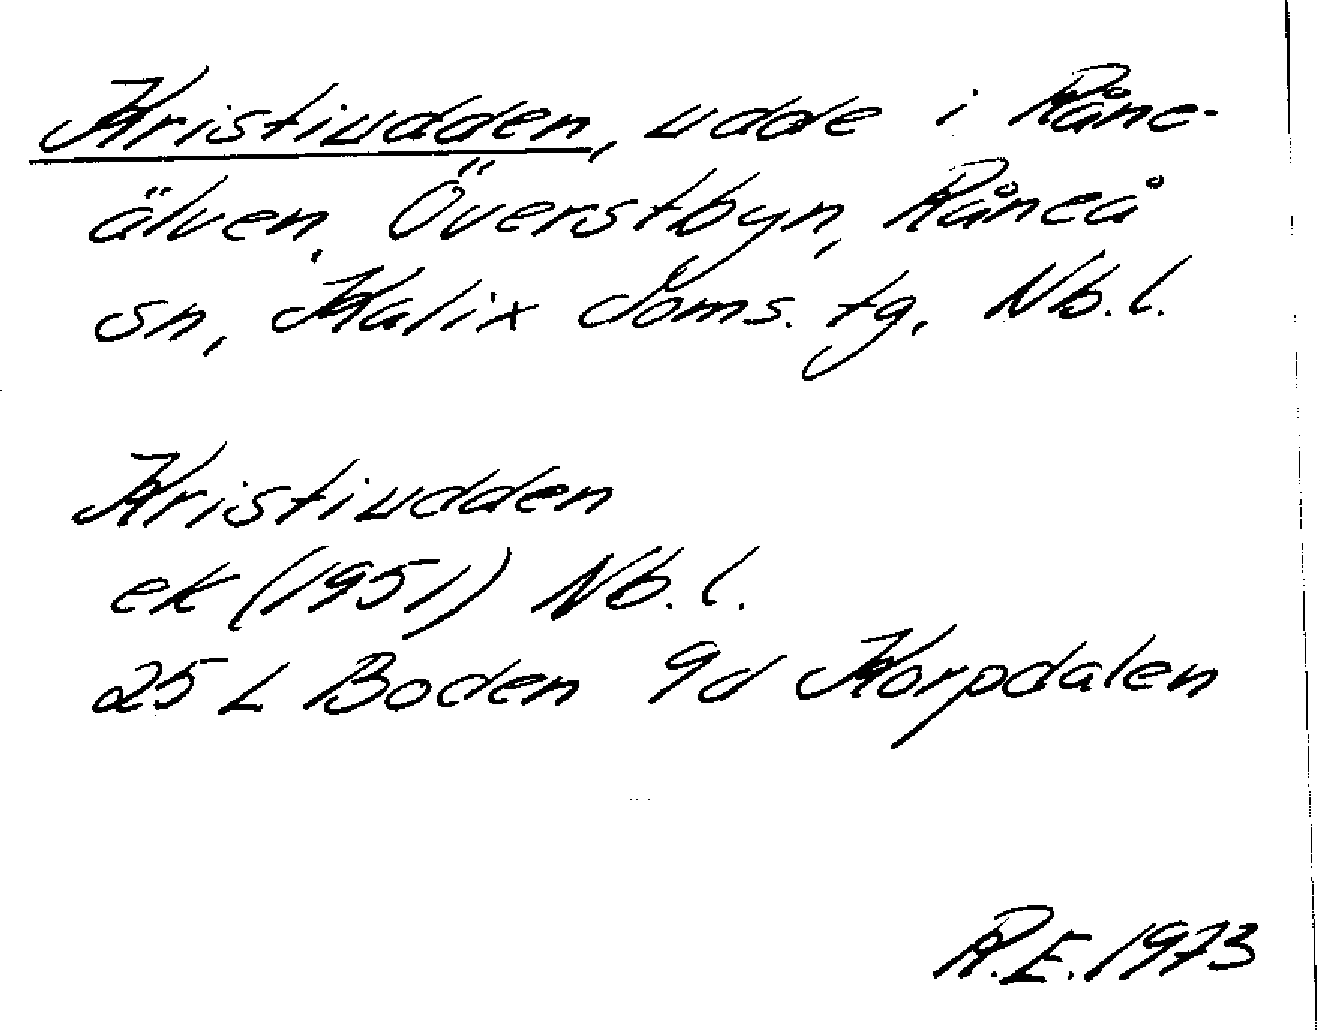 Kristiudden, udde i Råne-
älven, Överstbyn, Råneå
sn, Kalix doms. tg, Nb.l.
Kristiudden
ek (1951) Nb.l.
25 L Boden 9d Korpdalen
R.E. 1973